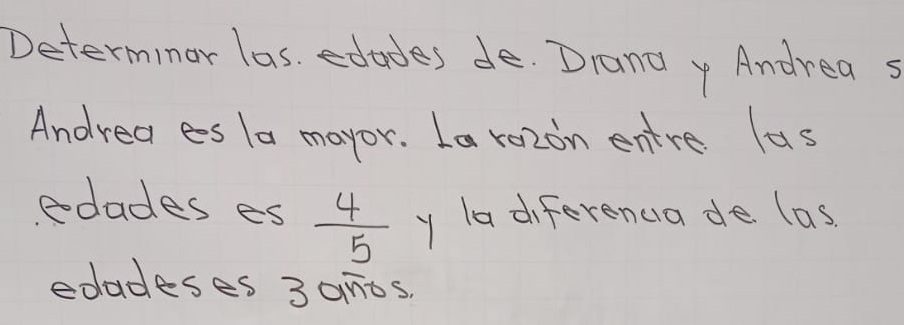 Determinar las. edades de. Diana y Andrea s
Andrea es la mayor. La razón entre las
edades es 4/5 y la diferencia de las.
edades es 3 años.